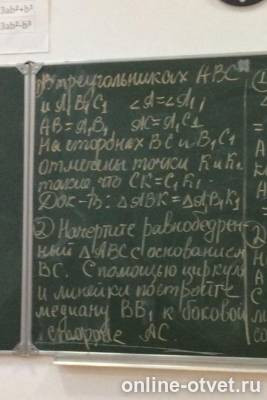 3ab²+b³
3ab²-b³
1) В треугольниках ABC
и A₁B₁C₁ ∠A=∠A₁,
AB=A₁B₁ AC=A₁C₁
На сторонах BC и B₁C₁
отмечены точки K и K₁
такие, что CK=C₁K₁.
Док-ть: ΔABK=ΔA₁B₁K₁
2) Начертите равнобедрен-
ный ΔABC с основанием
BC. С помощью циркуля
и линейки постройте
медиану BB₁ к боковой
стороне AC.
online-otvet.ru